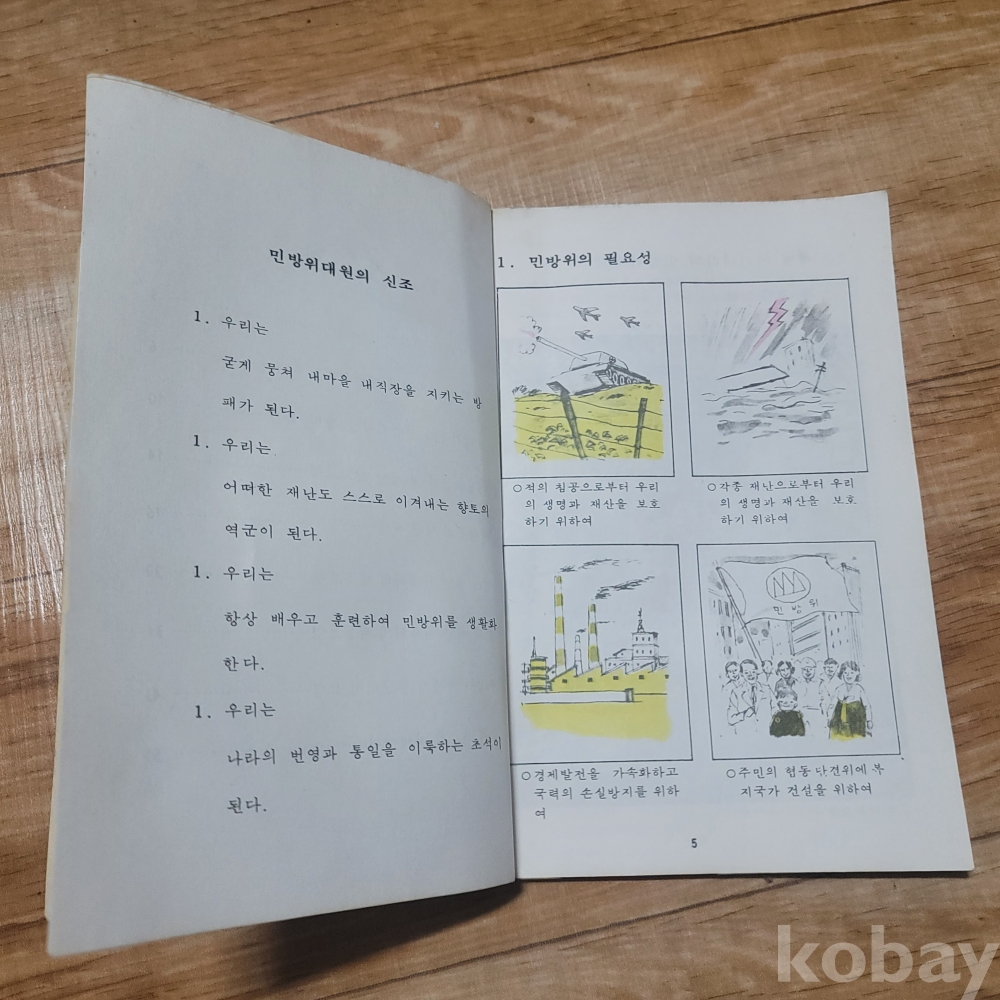 민방위대원의 신조
1. 우리는
굳게 뭉쳐 내마을 내직장을 지키는 방
패가 된다.
1. 우리는
어떠한 재난도 스스로 이겨내는 향토의
역군이 된다.
1. 우리는
항상 배우고 훈련하여 민방위를 생활화
한다.
1. 우리는
나라의 번영과 통일을 이룩하는 초석이
된다.
1. 민방위의 필요성
○적의 침공으로부터 우리
의 생명과 재산을 보호
하기 위하여
○각종 재난으로부터 우리
의 생명과 재산을 보호
하기 위하여
민방위
○경제발전을 가속화하고
국력의 손실방지를 위하
여
○주민의 협동단결위에 복
지국가 건설을 위하여
5
kobay